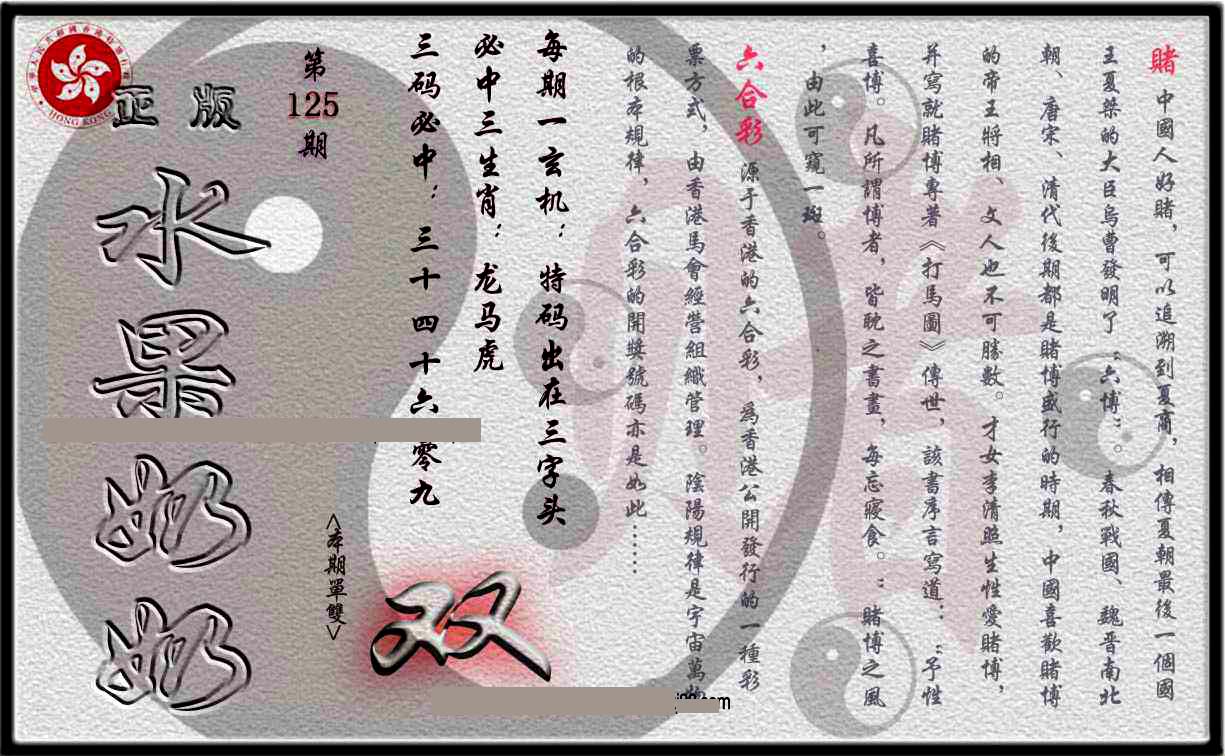 賭 中國人好賭，可以追溯到夏商，相傳夏朝最後一個國
王夏桀的大臣烏曹發明了“六博”。春秋戰國、魏晋南北
朝、唐宋、清代後期都是賭博盛行的時期，中國喜歡賭博
的帝王將相、文人也不可勝數。才女李清照生性愛賭博，
并寫就賭博專著《打馬圖》傳世，該書序言寫道：“予性
喜博。凡所謂博者，皆耽之書畫，每忘寢食。”賭博之風
，由此可窺一斑。
六合彩 源于香港的六合彩，為香港公開發行的一種彩
票方式，由香港馬會經營組織管理。陰陽規律是宇宙萬物
的根本規律，六合彩的開獎號碼亦是如此……
每期一玄机：特码出在三字头
必中三生肖：龙马虎
三码必中：三十四十六零九
第
125
期
<本期單雙>
双
正版
水果奶奶
HONG KONG
.com